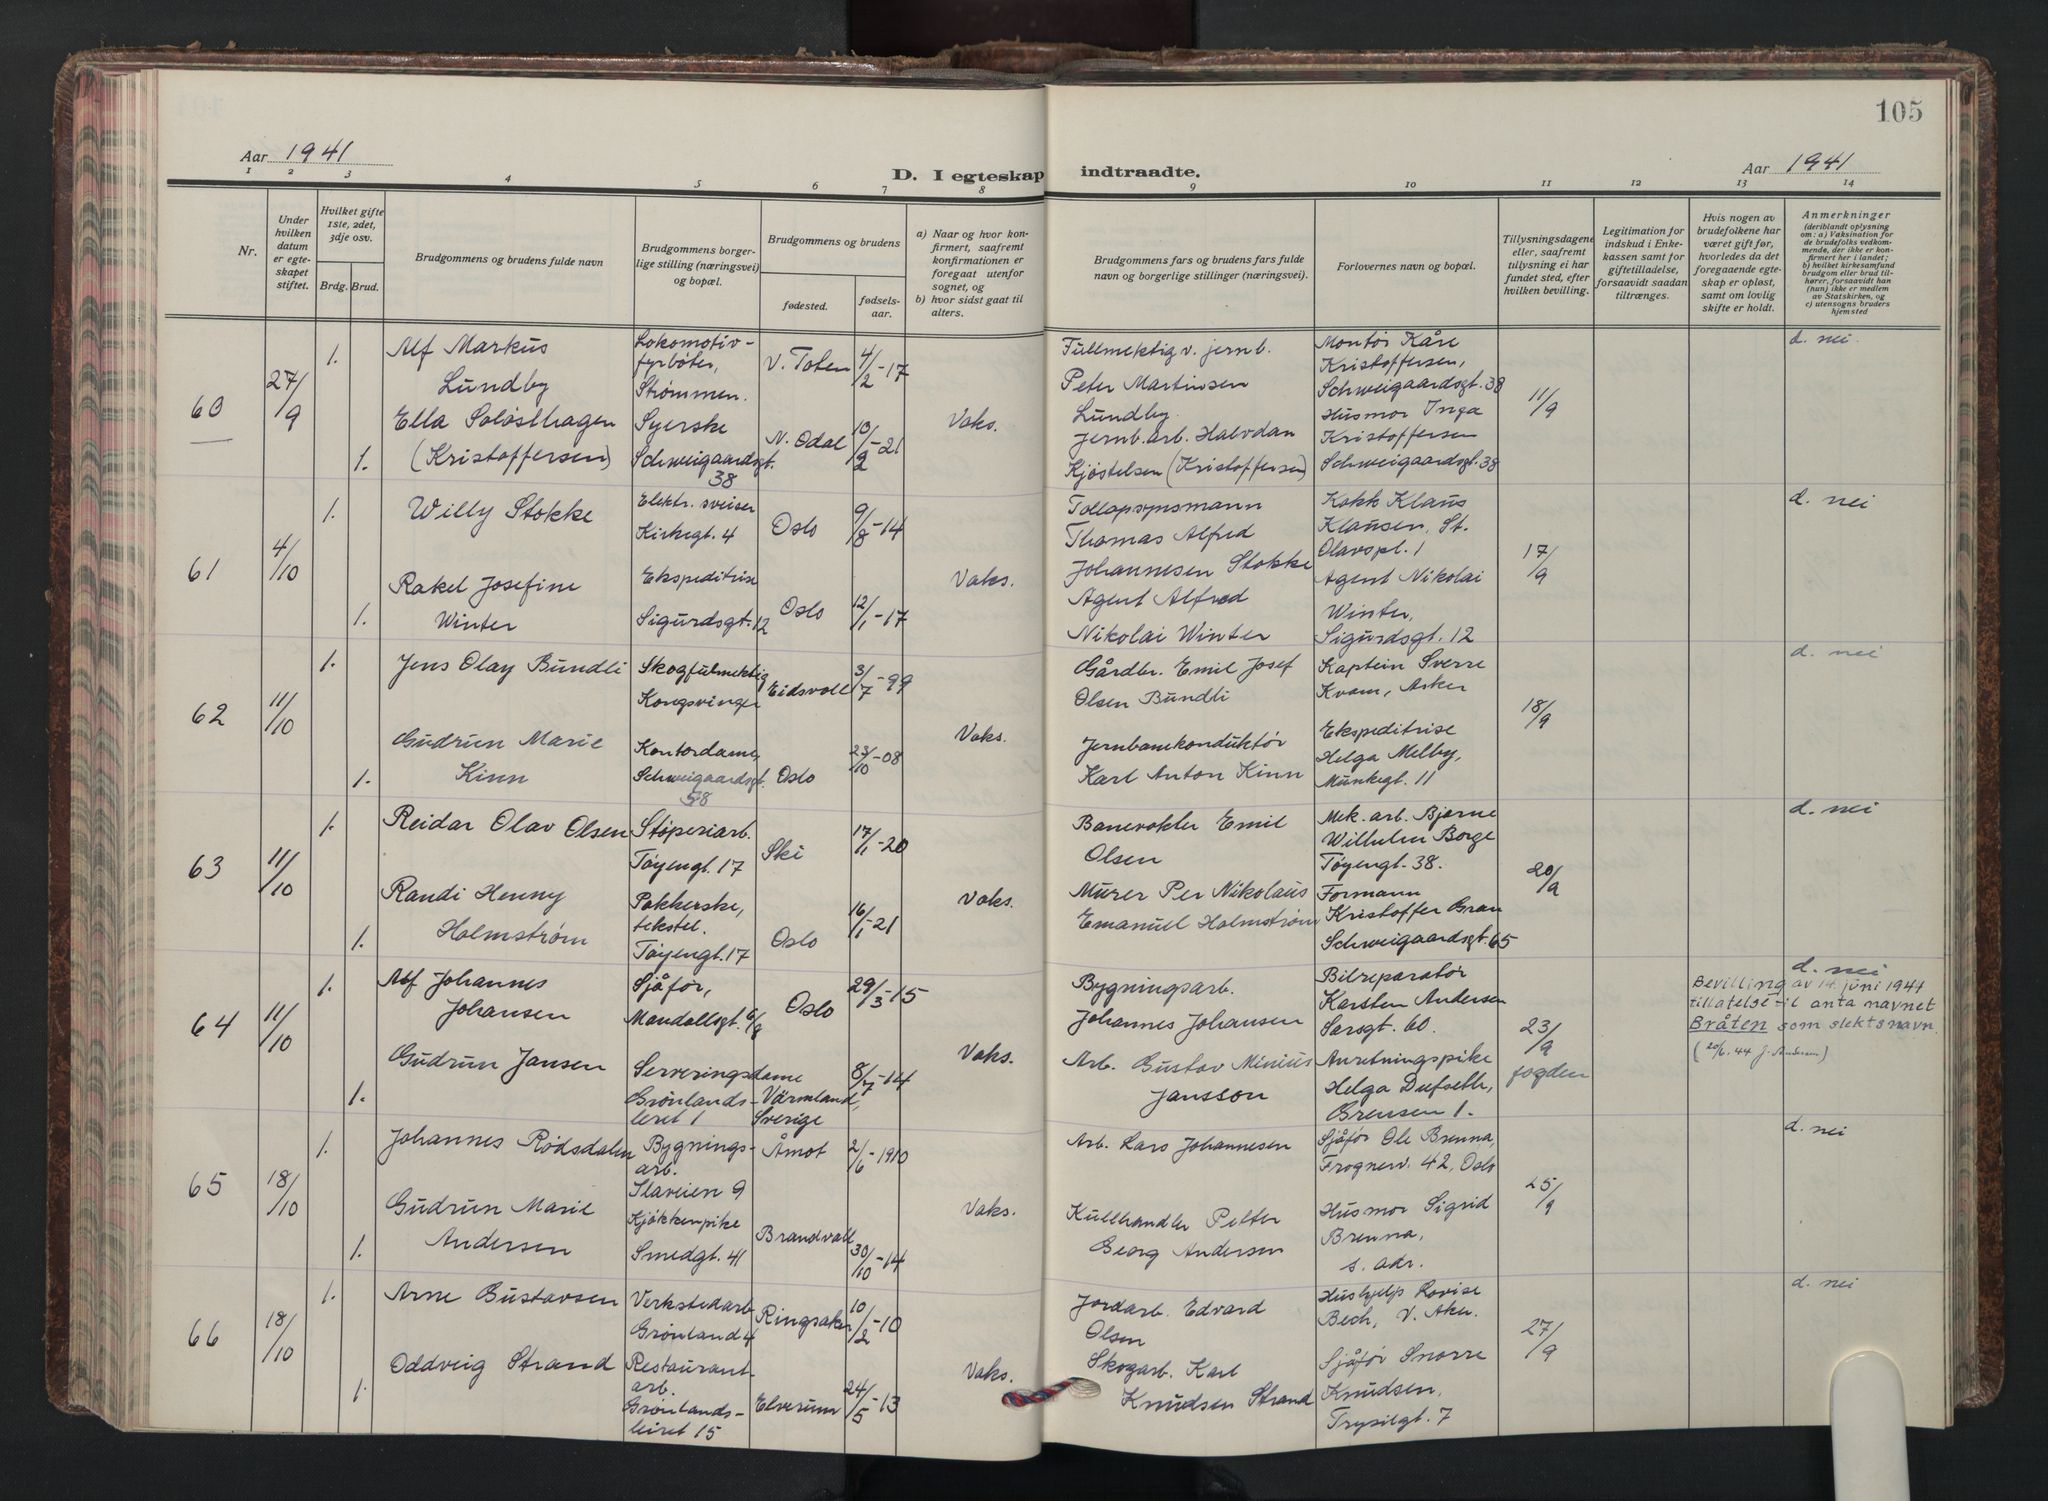 105
Aar 1941
D. I egteskap indtraadte.
Aar 1941
1 2 3 4 5 6 7 8 9 10 11 12 13 14
Nr.
Under hvilken datum er egteskapet stiftet.
Hvilket gifte 1ste, 2det, 3dje osv.
Brdg. Brud.
Brudgommens og brudens fulde navn
Brudgommens borgerlige stilling (næringsvei) og bopæl.
Brudgommens og brudens
fødested.
fødselsaar.
a) Naar og hvor konfirmert, saafremt konfirmationen er foregaat utenfor sognet, og
b) hvor sidst gaat til alters.
Brudgommens fars og brudens fars fulde navn og borgerlige stillinger (næringsvei).
Forlovernes navn og bopæl.
Tillysningsdagene eller, saafremt tillysning ei har fundet sted, efter hvilken bevilling.
Legitimation for indskud i Enkekassen samt for giftetilladelse, forsaavidt saadan tiltrænges.
Hvis nogen av brudefolkene har været gift før, hvorledes da det foregaaende egteskap er opløst, samt om lovlig skifte er holdt.
Anmerkninger (deriblandt oplysning om: a) Vaksination for de brudefolks vedkommende, der ikke er konfirmert her i landet; b) hvilket kirkesamfund brudgom eller brud tilhører, forsaavidt han (hun) ikke er medlem av Statskirken, og c) utensogns bruders hjemsted
60
27/9
1.
Alf Markus
Lundby
Lokomotiv-
fyrbøter,
Strømmen.
V. Toten
4/2-17
Ella Soløsthagen
(Kristoffersen)
1.
Syerske
Schweigaardsgt.
38
N. Odal
10/2-21
Vaks.
Fullmektig v. jernb.
Peter Martinsen
Lundby.
Jernb.arb. Halvdan
Kjøstelsen (Kristoffersen)
Montør Kåre
Kristoffersen,
Schweigaardsgt. 38
Husmor Inga
Kristoffersen
Schweigaardsgt. 38
11/9
d. nei
61
4/10
1.
Willy Stokke
Elektr. sveiser
Kirkegt. 4
Oslo
9/8-14
Rakel Josefine
Winter
1.
Ekspeditrise
Sigurdsgt. 12
Oslo
12/1-17
Vaks.
Tollopsynsmann
Thomas Alfred
Johannesen Stokke
Agent Alfred
Nikolai Winter
Kokk Klaus
Klausen, St.
Olavspl. 1
Agent Nikolai
Winter,
Sigurdsgt. 12
17/9
d. nei
62
11/10
1.
Jens Olav Bundli
Skogfulmektig
Kongsvinger
Eidsvoll
3/7-99
Gudrun Marie
Kinn
1.
Kontordame,
Schweigaardsgt.
58
Oslo
23/10-08
Vaks.
Gårdbr. Emil Josef
Olsen Bundli
Jernbanekonduktør
Karl Anton Kinn
Kaptein Sverre
Kvam, Asker
Ekspeditrise
Helga Melby,
Munkegt. 11
18/9
d. nei
63
11/10
1.
Reidar Olav Olsen
Støperiarb.
Tøyengt. 17
Ski
17/1-20
Randi Henny
Holmstrøm
1.
Pakkerske,
tekstel.
Tøyengt. 17
Oslo
16/1-21
Vaks.
Banevokter Emil
Olsen
Murer Per Nikolaus
Emanuel Holmstrøm
Mek. arb. Bjarne
Wilhelm Borge
Tøyengt. 38.
Formann
Kristoffer Bran
Schweigaardsgt. 65
20/9
d. nei
64
11/10
1.
Alf Johannes
Johansen
Sjåfør,
Mandallsgt. 6/8
Oslo
29/3-15
Gudrun Jansen
1.
Serveringsdame
Grønlands-
leret 1
Värmland,
Sverige
8/7-14
Vaks.
Bygningsarb.
Johannes Johansen
Arb. Gustav Minius
Jansson
Bilreparatør
Karsten Andersen
Sarsgt. 60.
Anretningspike
Helga Dufseth,
Brensen 1.
23/9
fogden
d. nei
Bevilling av 14. juni 1941
tillatelse til anta navnet
Bråten som slektsnavn.
(20/6.44 J. Andersen)
65
18/10
1.
Johannes Rødsdalen
Bygnings-
arb.
Ilaveien 9
Åmot
2/6-1910
Gudrun Marie
Andersen
1.
Kjøkkenpike
Smedgt. 41
Brandvall
30/10-14
Vaks.
Arb. Lars Johannesen
Kullhandler Petter
Georg Andersen
Sjåfør Ole Brenna,
Frognerv. 42, Oslo
Husmor Sigrid
Brenna,
s. adr.
25/9
d. nei
66
18/10
1.
Arne Gustavsen
Verkstedarb
Grønland 4
Ringsaker
10/2-10
Oddveig Strand
1.
Restaurant-
arb.
Grønlands-
leiret 15
Elverum
24/5-13
Vaks.
Jordarb. Edvard
Olsen
Skogarb. Karl
Knudsen Strand
Hushjelp Lovise
Bech, V. Aker.
Sjåfør Snorre
Knudsen,
Trysilgt. 7
27/9
d. nei